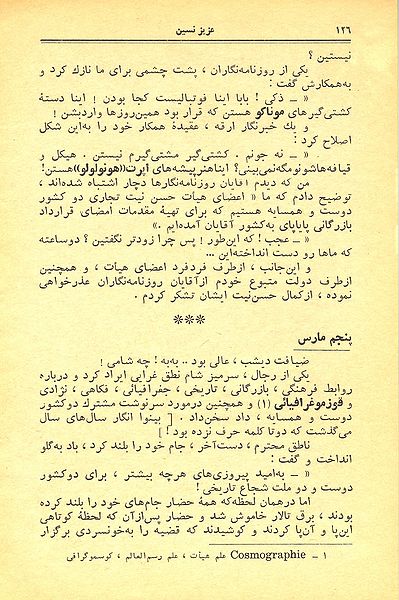 ۱۲۶ عزیز نسین
نیستین ؟
یکی از روزنامه‌نگاران ، پشت چشمی برای ما نازك کرد و
به‌همکارش گفت :
« ــ ذکی ! بابا اینا فوتبالیست کجا بودن ! اینا دستهٔ
کشتی‌گیرهای موناکو هستن که قرار بود همین‌روزها واردبشن !
و یك خبرنگار ارقه ، عقیدهٔ همکار خود را به‌این شکل
اصلاح کرد :
« ــ نه جونم . کشتی‌گیر مشتی‌گیرم نیستن . هیکل و
قیافه‌هاشونومگه‌نمی‌بینی؟ ایناهنرپیشه‌های اپرت«هونولولو»هستن!
من که دیدم آقایان روزنامه‌نگارها دچار اشتباه شده‌اند ،
توضیح دادم که ما « اعضای هیأت حسن نیت تجاری دو کشور
دوست و همسایه هستیم که برای تهیهٔ مقدمات امضای قرارداد
بازرگانی پایاپای به‌کشور آقایان آمده‌ایم .»
« ــ عجب ! که این‌طور ! پس چرا زودتر نگفتین ؟ دوساعته
که ماها رو دست انداخته‌این ...
و این‌جانب ، ازطرف فردفرد اعضای هیأت ، و همچنین
ازطرف دولت متبوع خودم ازآقایان روزنامه‌نگاران عذرخواهی
نموده ، ازکمال حسن‌نیت ایشان تشکر کردم .
***
پنجم مارس
ضیافت دیشب ، عالی بود .. به‌به ! چه شامی !
یکی از رجال ، سرمیز شام نطق غرایی ایراد کرد و درباره
روابط فرهنگی ، بازرگانی ، تاریخی ، جغرافیائی ، فکاهی ، نژادی
و قوزموغرافیائی (۱) و همچنین درمورد سرنوشت مشترك دوکشور
دوست و همسایه ، داد سخن‌داد . [ بینوا انگار سال‌های سال
می‌گذشت که دوتا کلمه حرف نزده بود! ]
ناطق محترم ، دست‌آخر ، جام خود را بلند کرد ، باد به‌گلو
انداخت و گفت :
« ــ به‌امید پیروزی‌های هرچه بیشتر ، برای دوکشور
دوست و دو ملت شجاع تاریخی !
اما درهمان لحظه‌که همهٔ حضار جام‌های خود را بلند کرده
بودند ، برق تالار خاموش شد و حضار پس‌ازآن که لحظهٔ کوتاهی
این‌پا و آن‌پا کردند و کوشیدند که قضیه را به‌خونسردی برگزار
۱ ــ Cosmographie علم هیأت ، علم رسم‌العالم ، کوسموگرافی